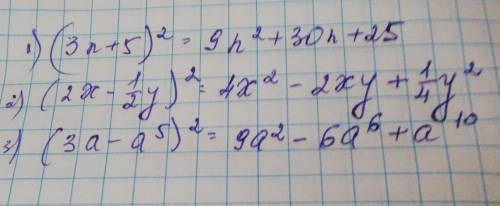 1) (3n+5)² = 9n² + 30n + 25
2) (2x - 1/2y)² = 4x² - 2xy + 1/4y²
3) (3a - a⁵)² = 9a² - 6a⁶ + a¹⁰